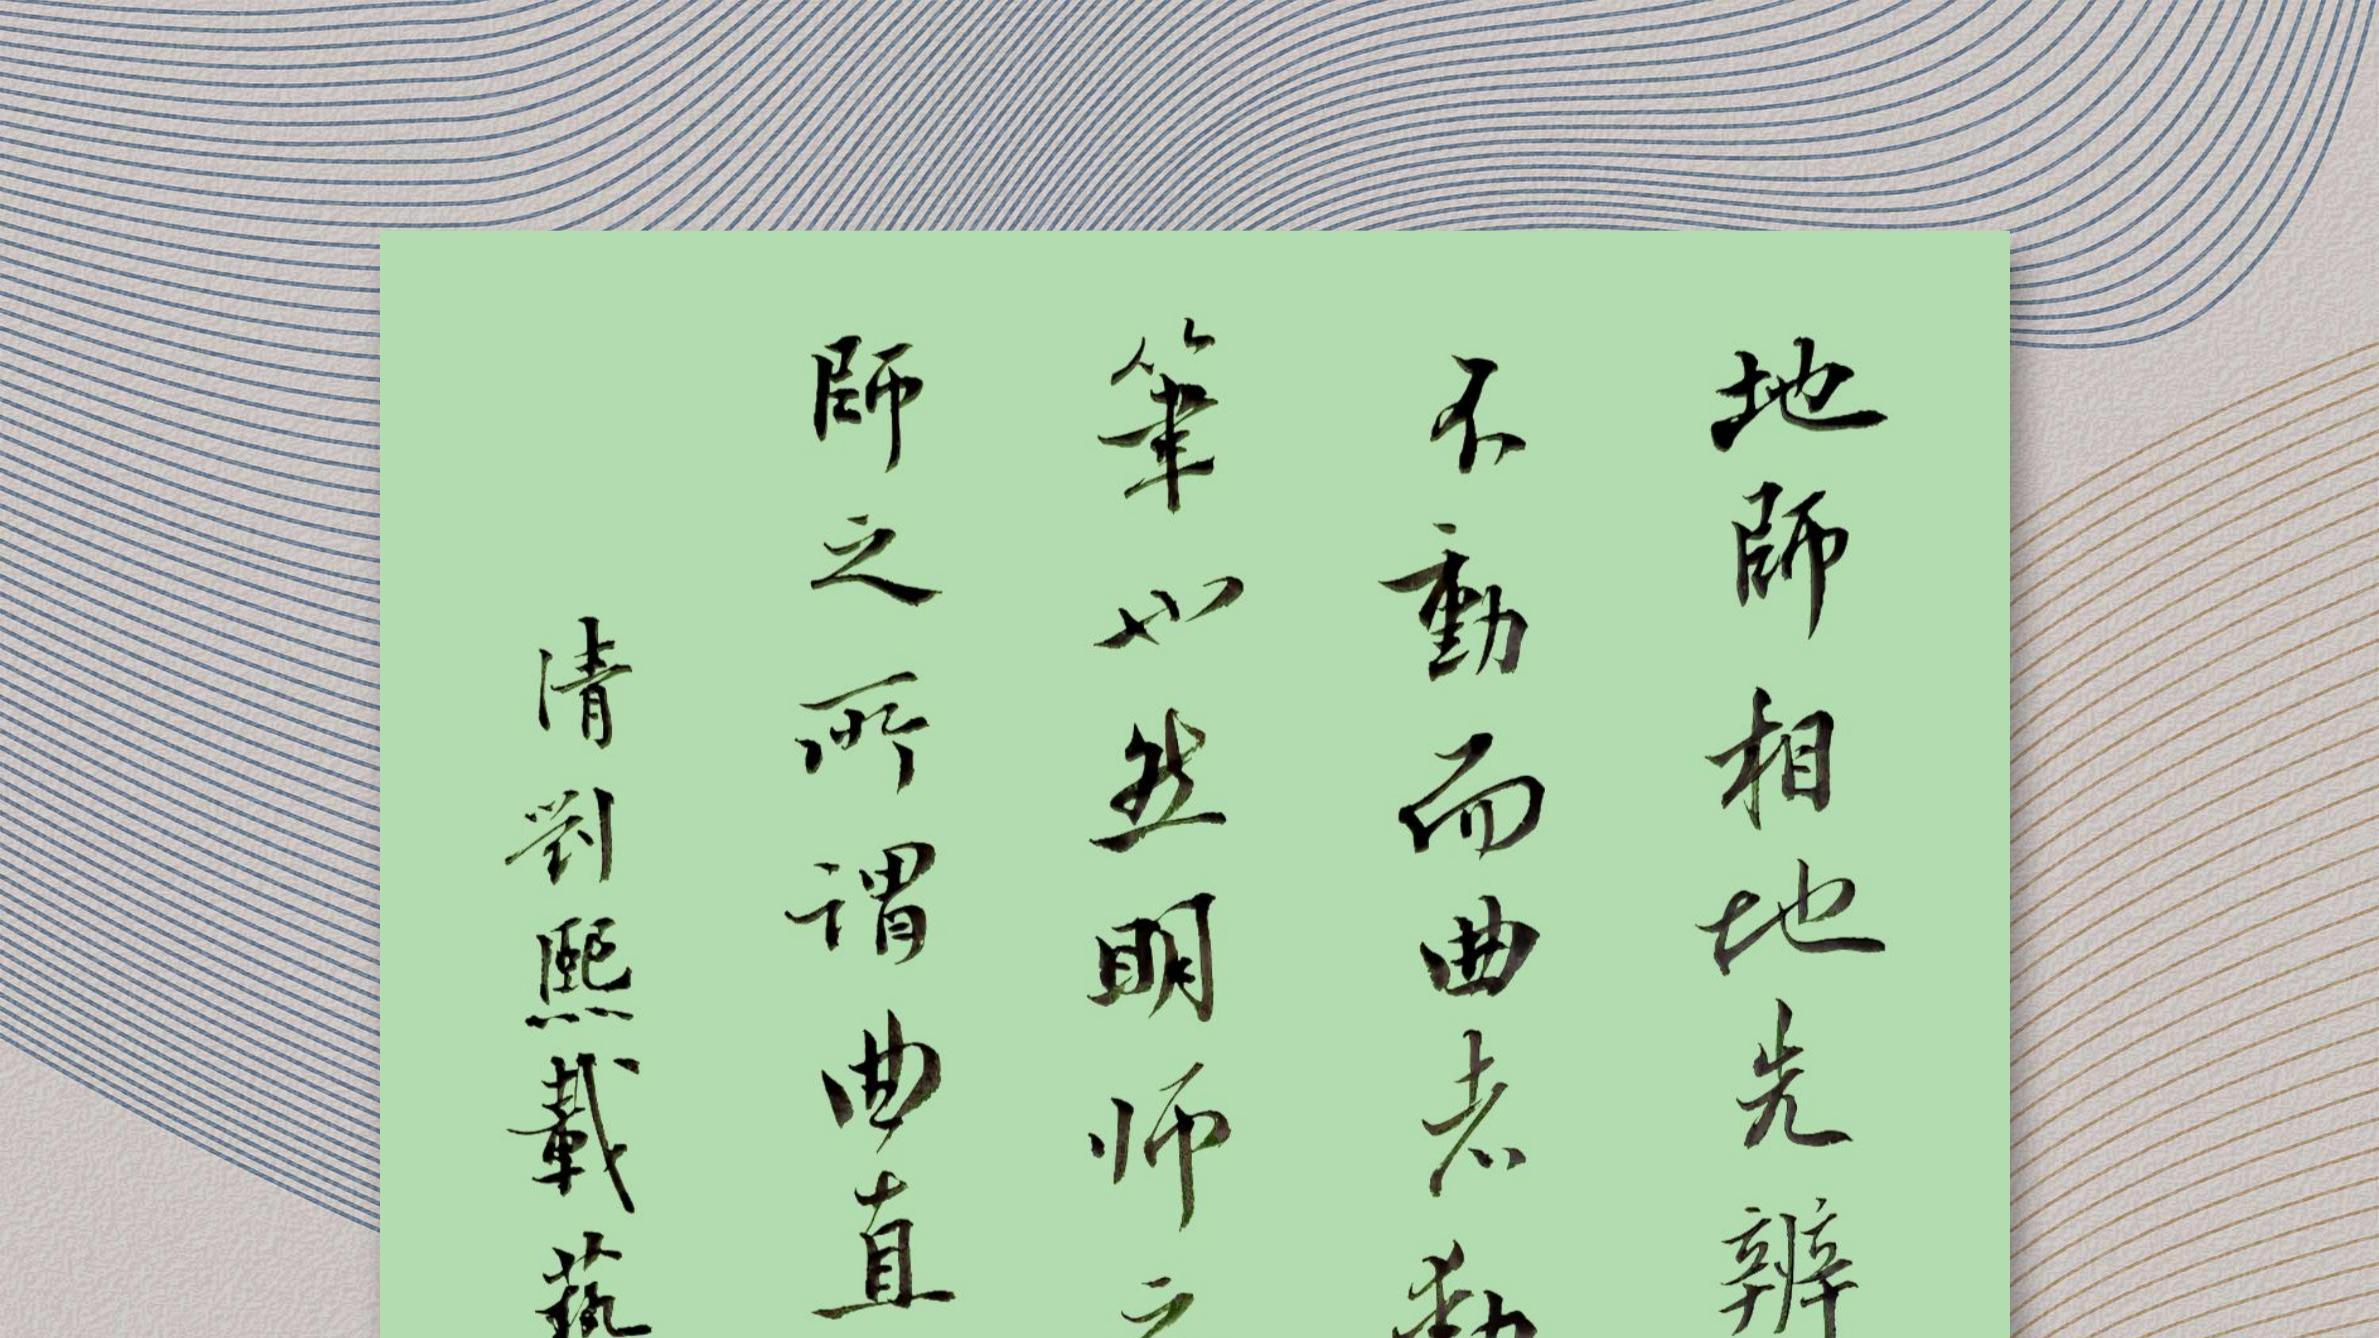 地師相地先辨
不動而曲者動
筆亦然明师之
師之所謂曲直
清劉熙載藝